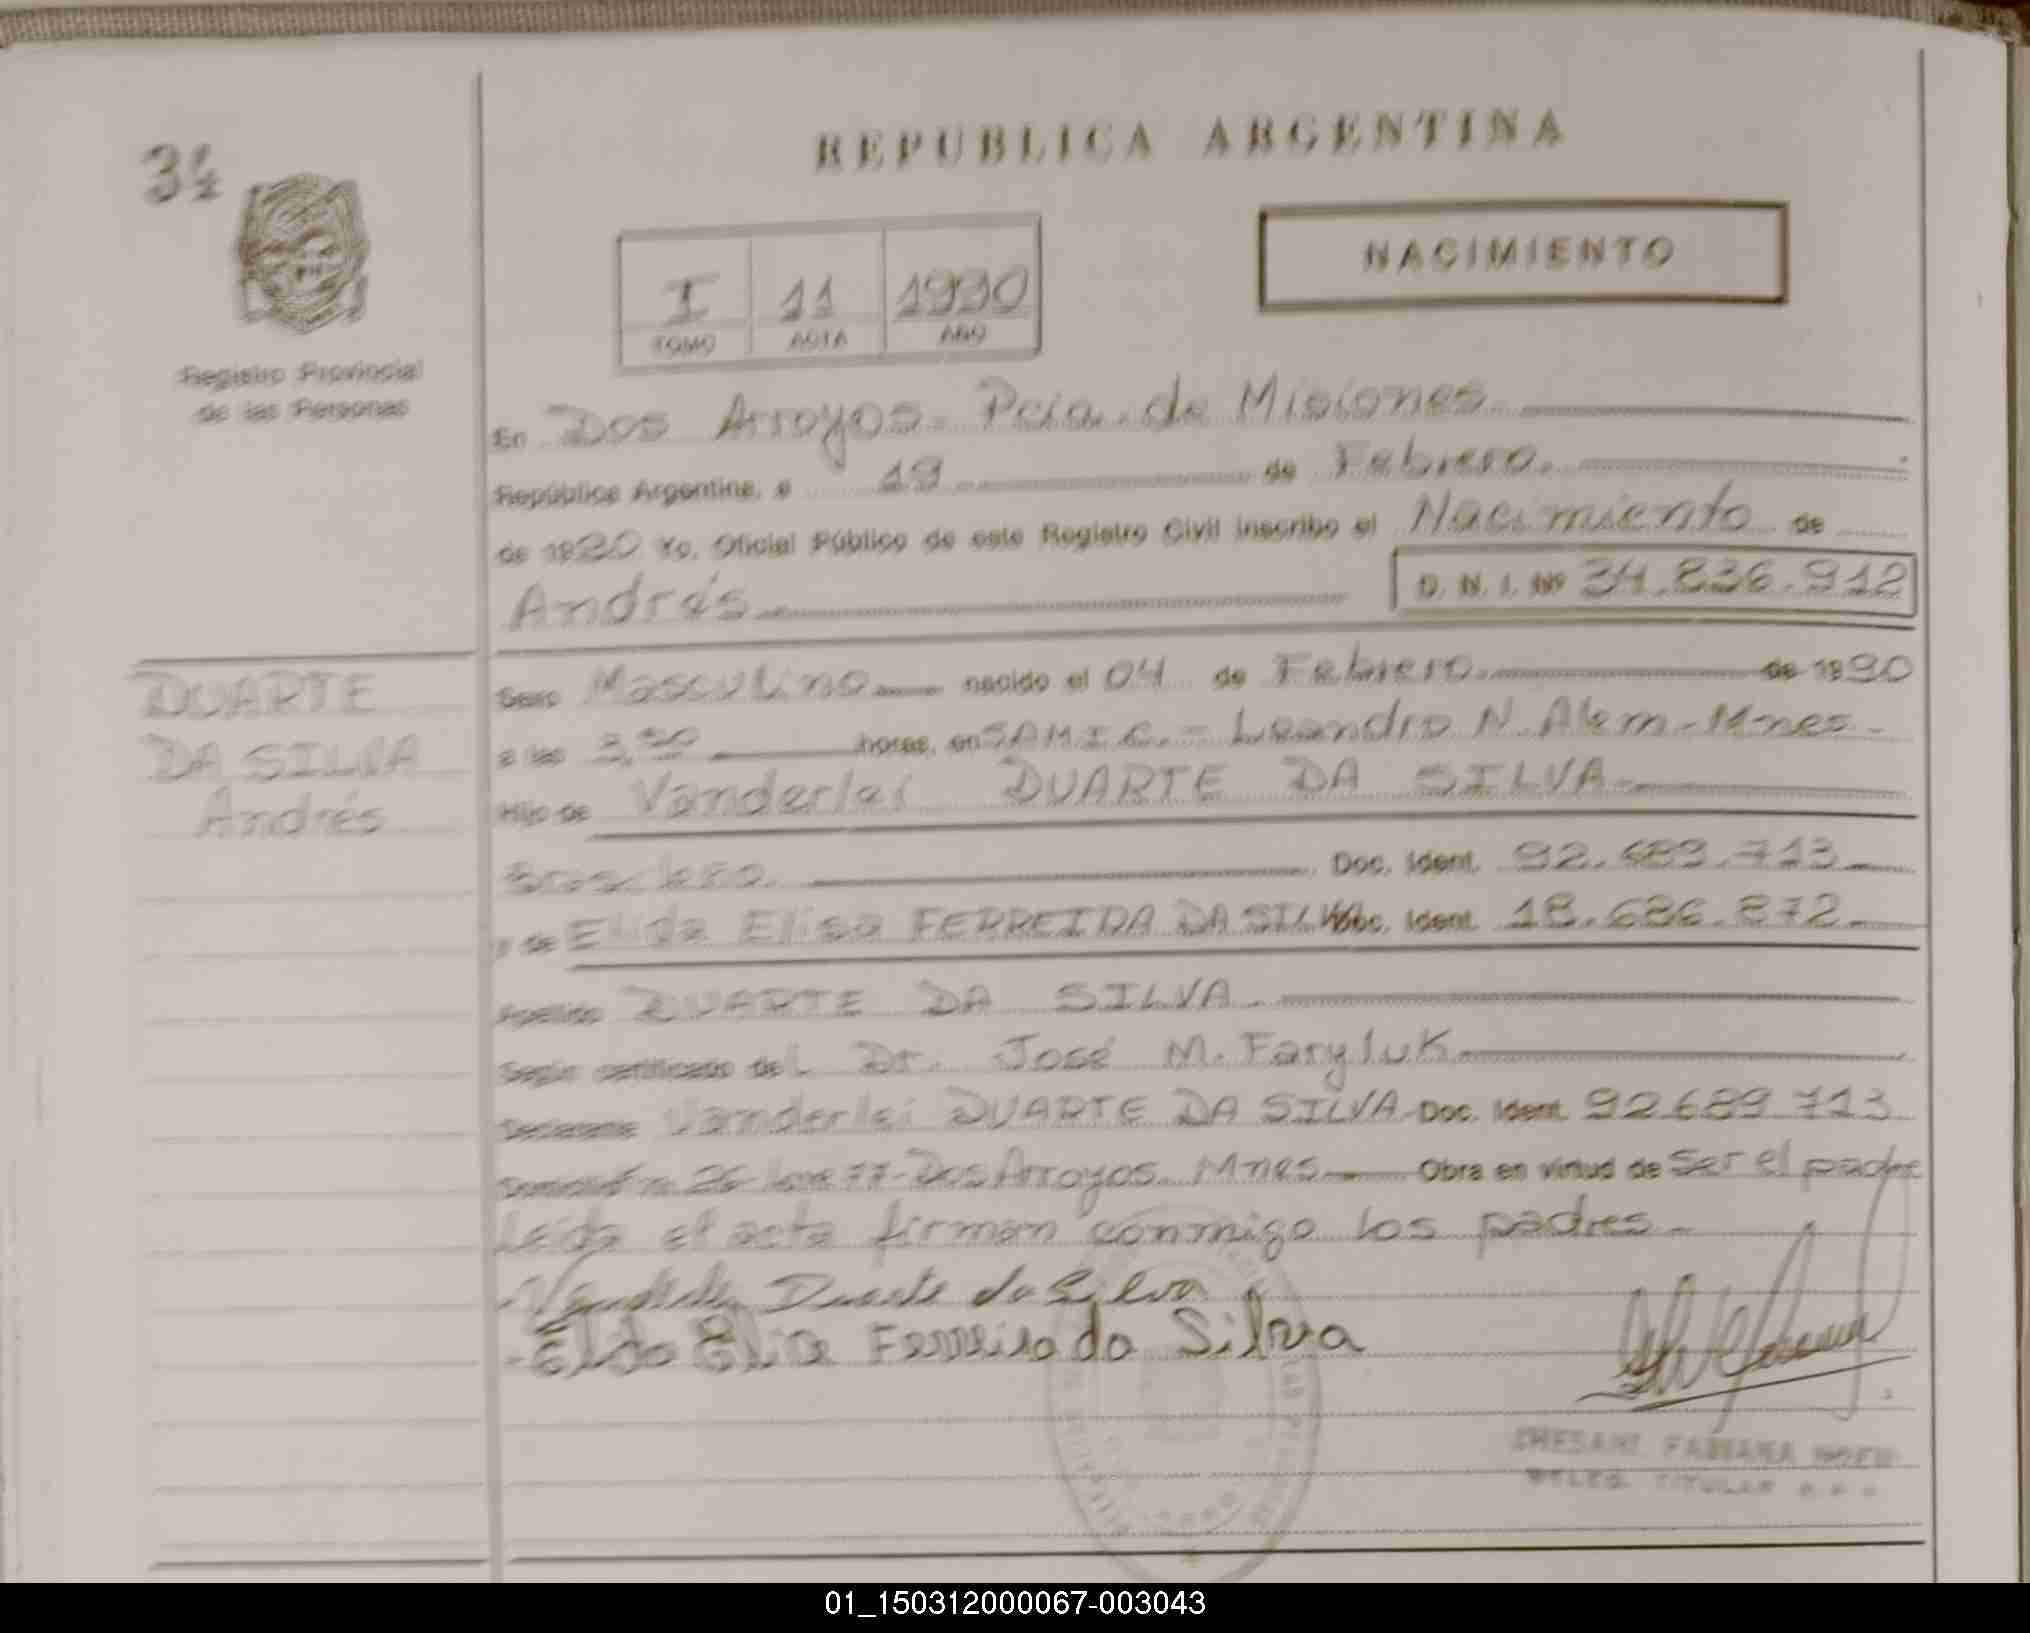 34
REPUBLICA ARGENTINA
NACIMIENTO
I 11 1990
TOMO ACTA AÑO
Registro Provincial
de las Personas
En Dos Arroyos. Pcia. de Misiones.
República Argentina, a 19 de Febrero.
de 1990 Yo, Oficial Público de este Registro Civil inscribo el Nacimiento de
Andrés D. N. I. Nº 34.836.912
DUARTE
DA SILVA
Andrés
Sexo Masculino nacido el 04 de Febrero. de 1990
a las horas, en SAMIC. - Leandro N. Alem - Mnes -
Hijo de Vanderlei DUARTE DA SILVA
Brasilero. Doc. Ident. 92.689.713
y de Elida Elisa FERREIRA DA SILVA Doc. Ident. 18.686.872
Apellido DUARTE DA SILVA
Según certificado del Dr. José M. Faryluk
Declarante Vanderlei DUARTE DA SILVA Doc. Ident. 92689713
26 77 - Dos Arroyos. Mnes Obra en virtud de ser el padre
Leída el acta firman conmigo los padres -
Duarte da Silva
Elida Elisa Ferreira da Silva
FABIANA
TITULAR
01_150312000067-003043